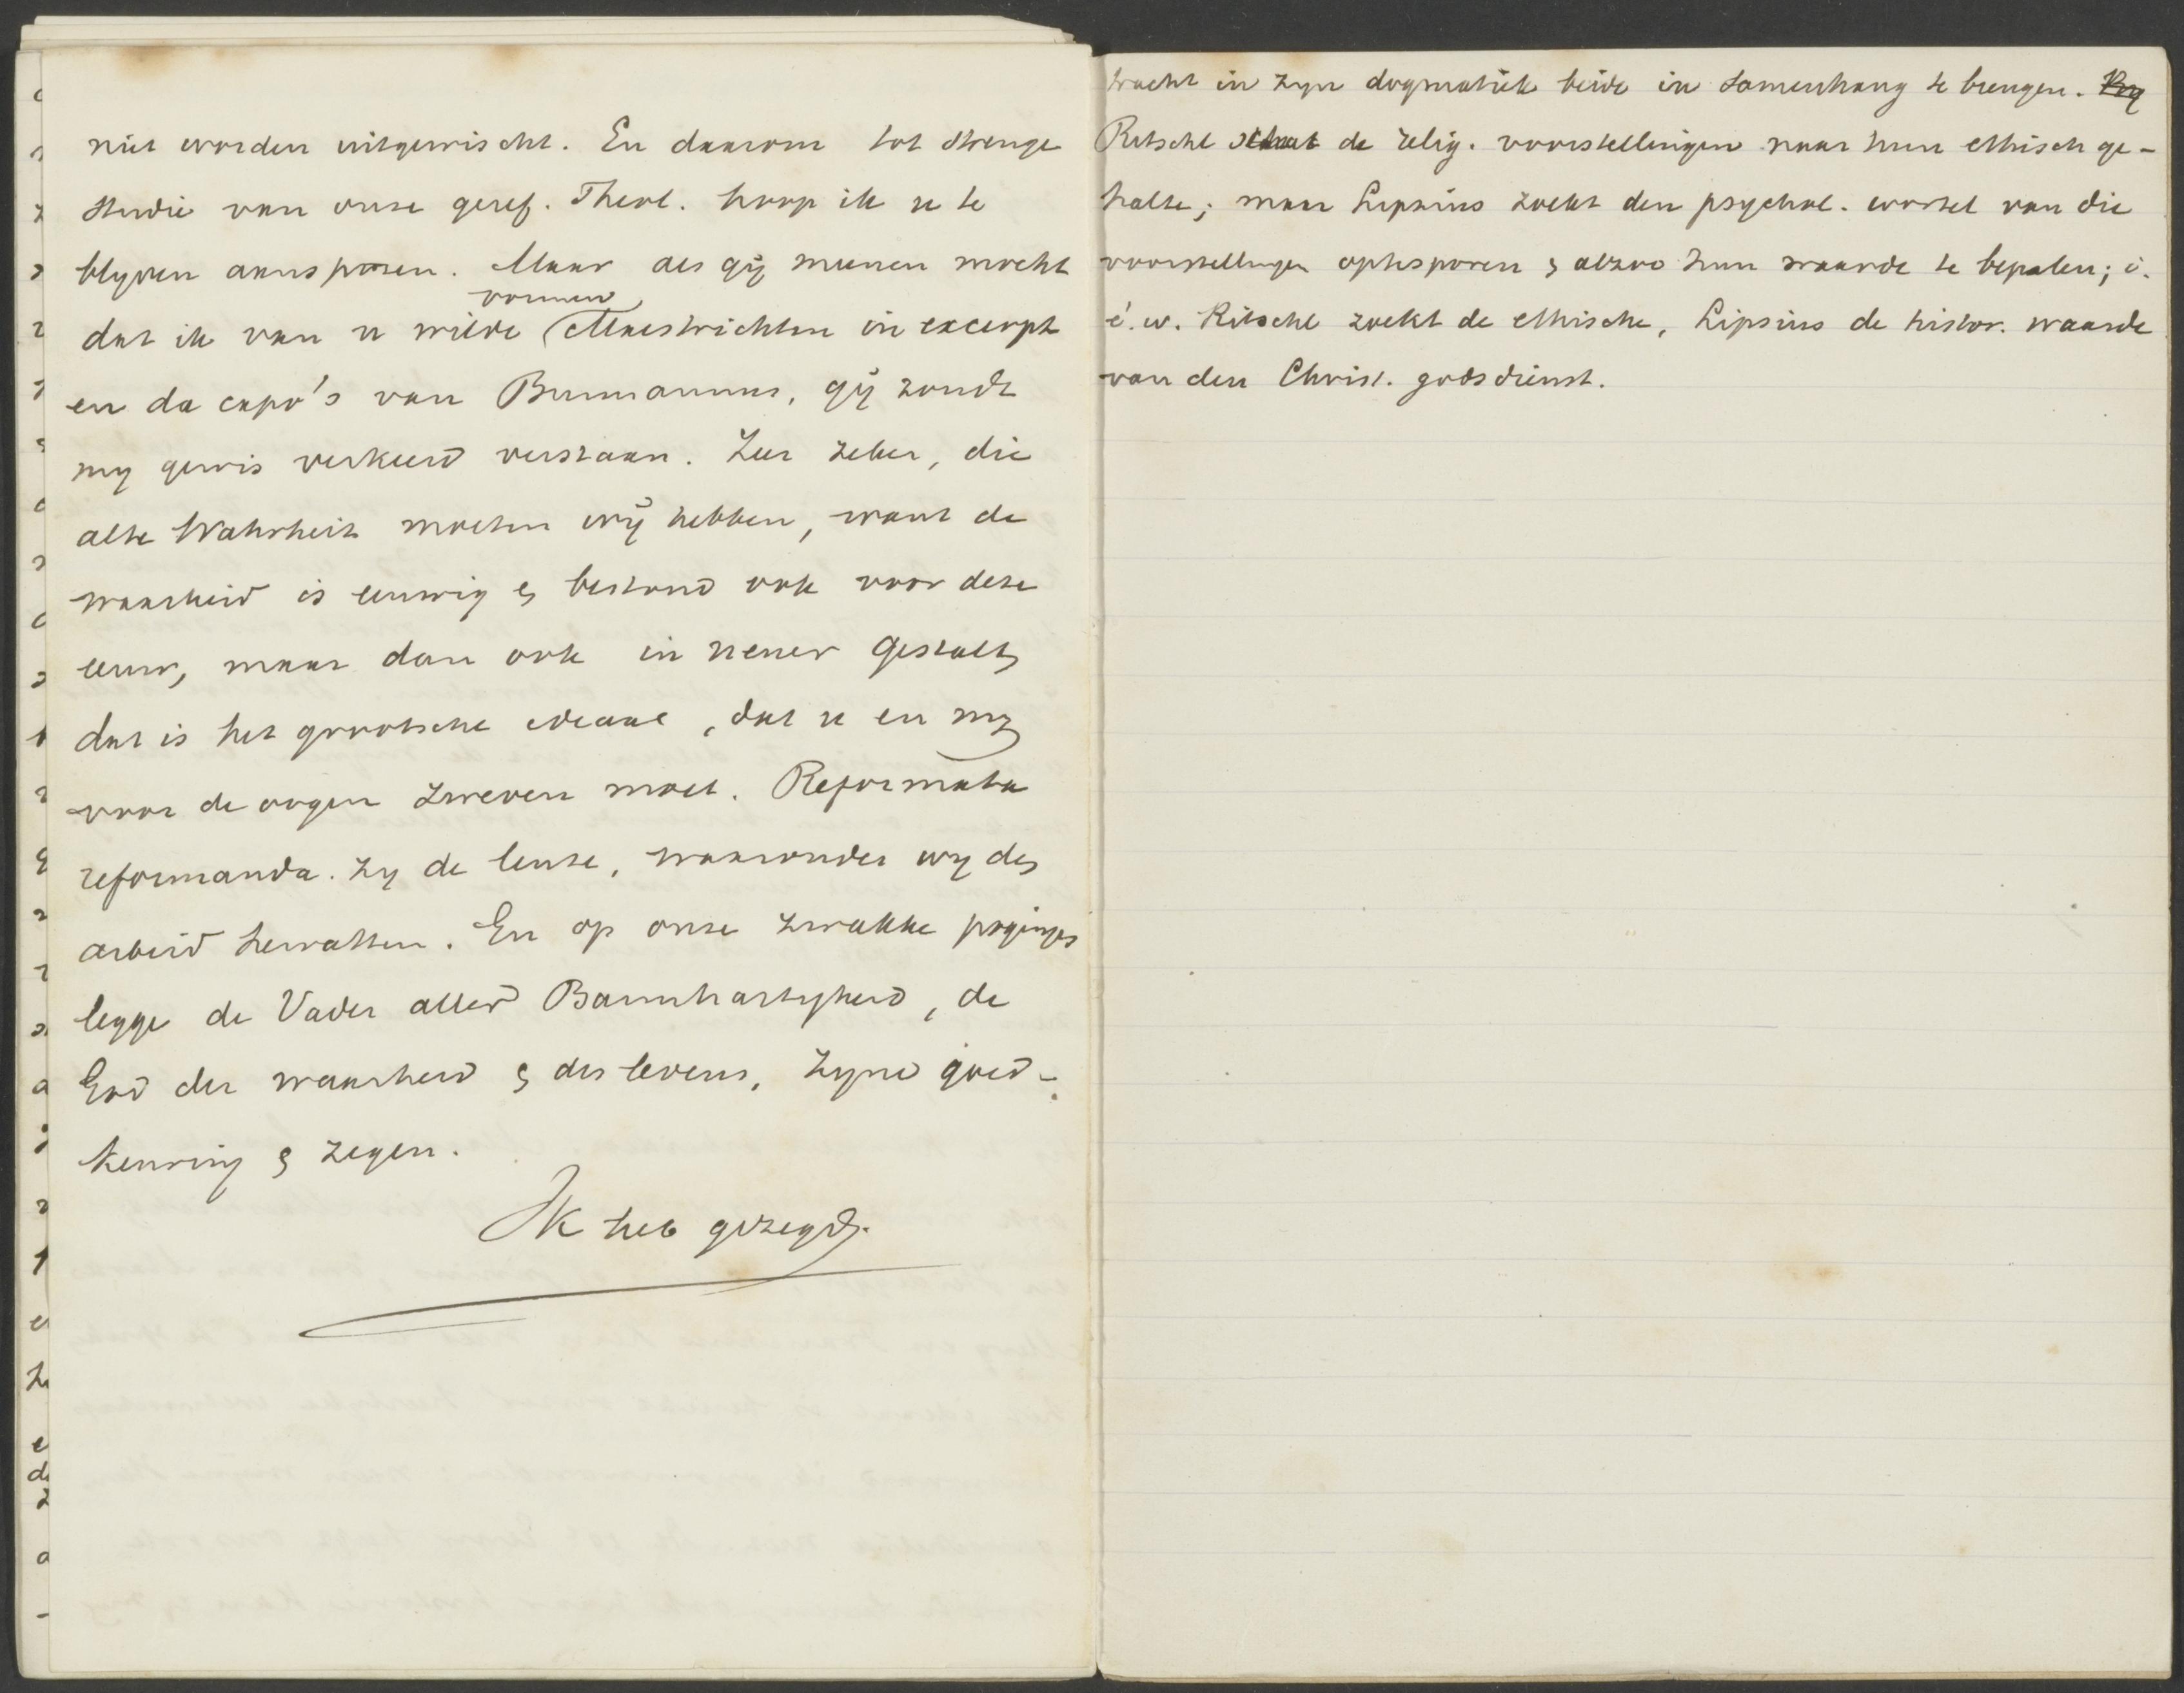 niet worden uitgewischt. En daarom tot strenge
studie van onze geref. Theol. hoop ik u te
blyven aansporen. Maar als gij meenen mocht
vormen
dat ik van u wilde Maestrichten in excerpt
en da capo's van Burmannus, gij zoudt
my gewis verkeerd verstaan. Zeer zeker, die
alte Wahrheit moeten wij hebben, want de
waarheid is eeuwig & bestond ook voor deze
eeuw, maar dan ook in neuer Gestalt,
dat is het grootsche ideaal, dat u en my
voor de oogen zweven moet. Reformata
reformanda. zy de leuze, waaronder wy den
arbeid hervatten. En op onze zwakke pogingen
legge de Vader aller Barmhartigheid, de
God der waarheid & des levens, zyne goed-
keuring & zegen.
Ik heb gezegd.
tracht in zyn dogmatiek beide in samenhang te brengen.
Ritschl schat de relig. voorstellingen naar hun ethisch ge-
halte; maar Lipsius zoekt den psychol. wortel van die
voorstellingen optesporen & alzoo hun waarde te bepalen; i.
é. w. Ritschl zoekt de ethische, Lipsius de histor. waarde
van den Christ. godsdienst.